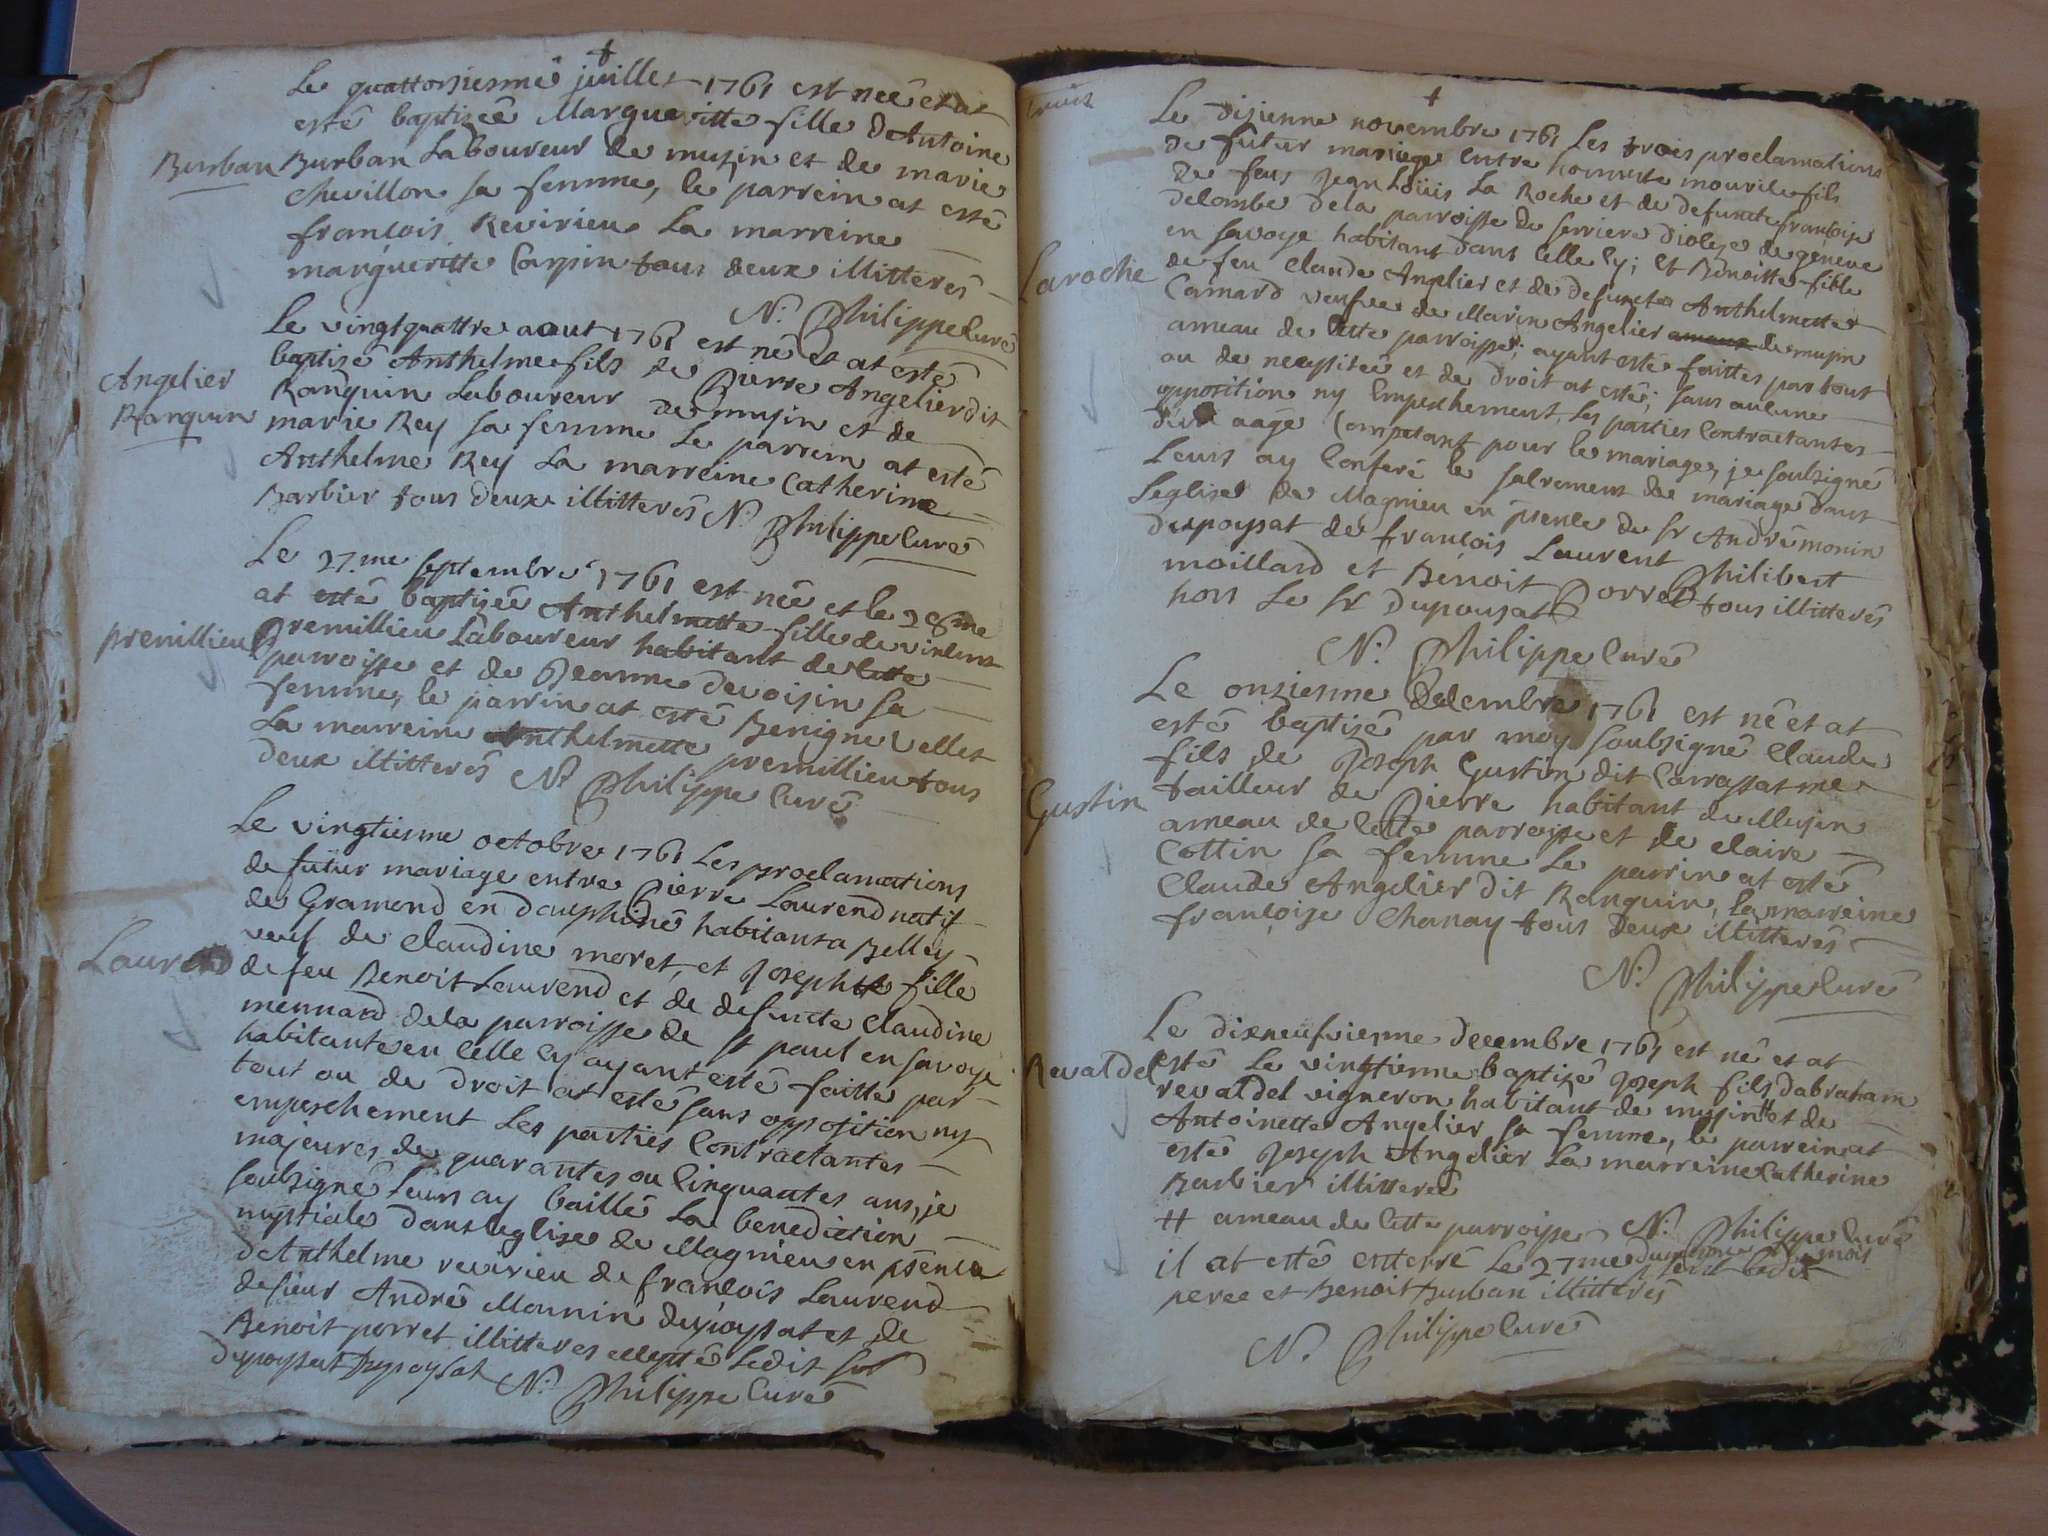 Le quattorsiesme juillet 1761 est neé et at
esté baptisée Margueritte fille d'Antoine
Burban
Burban Laboureur de musin et de marie
chevillon sa femme, le parrein at esté
francois Revirieu La marreine
margueritte Carpin tous deux illitterés
N. Philippe Curé
Le vingtquattre aout 1761 est né et at esté
baptizé Anthelme fils de Pierre Angelier dit
Angelier
Ranquin
Ranquin Laboureur de musin et de
marie Rey sa femme Le parrein at esté
Anthelme Rey La marreine Catherine
Barbier tous deux illitterés N. Philippe Curé
Le 27.me septembre 1761 est née et le 28me
at esté baptizée Anthelmette fille de vincent
premillieu
Premillieu Laboureur habitant de cette
parroisse et de Jeanne devoisin sa
femme, le parrin at esté Benigne vellet
La marreine Anthelmette premillieu tous
deux illitterés N. Philippe Curé
Le vingtiesme octobre 1761 Les proclamations
de futur mariage entre Pierre Laurend natif
de Gramond en dauphiné habitant a Belley
veuf de Claudine moret, et Josephte fille
Laurend
de feu Benoit Laurend et de defuncte Claudine
mennard dela parroisse de st paul en savoye
habitante en celle cy ayant esté faitte par
tout ou de droit at esté sans opposition ny
empeschement Les parties Contractantes
majeures de quarantes ou Cinquantes ans, je
soubsigné Leurs ay baillé La benediction
nuptiale dans leglise de Magnieu en psence
d'Anthelme revirieu de francois Laurend
de sieur André Monnin depoysat et de
Benoit porret illitteres excepté Ledit sr
dupoysat Dupoysat N. Philippe Curé
Le disienne novembre 1761 Les trois proclamations
de futur mariage entre honneste mourile fils
de feus Jean Loüis La Roche et de defuncte francoise
delombe dela parroisse de serriere dioleze de géneve
en savoye habitant dans Celle Cy; et Benoitte fille
Laroche
de feu Claude Angelier et de defuncte Anthelmette
Camard veufve de Marin Angelier ameau de musin
ameau de cette parroisse; ayant esté faittes par tout
ou de necessiteé et de droit at esté; sans aulcune
opposition ny Empeschement, Les parties Contractantes
d'un aage Competant pour le mariage, je soubsigné
Leurs ay Conferé le sacrement de mariage dans
Leglise de Magnieu en psence de sr André monin
dupoysat de francois Laurent Philibert
moillard et Benoit Porret tous illitterés
hors Le sr dupoysat
N. Philippe Curé
Le onsiesme Decembre 1761 est né et at
esté baptisé par moy soubsigné Claude
fils de Joseph Gustin dit Carrassat me
Gustin
tailleur de Pierre habitant de Musin
ameau de cette parroisse et de claire
Cottin sa femme Le parrin at esté
Claude Angelier dit Ranquin, la marreine
francoise Chanay tous deux illitterés
N. Philippe Curé
Le dixneufviesme decembre 1761 est né et at
Revaldel
esté Le vingtienne baptisé Joseph fils d'abraham
revaldel vigneron habitant de musin # et de
Antoinette Angelier sa femme, le parrein at
esté Joseph Angelier La marreine Catherine
Barbier illitteres
# ameau de cette parroisse N. Philippe Curé
il at esté enterré Le 27me du mesme mois
peree et Benoit Burban illitterés
N. Philippe Curé